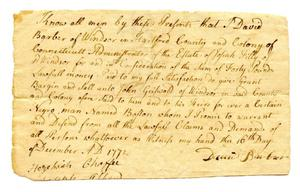 Know all men by these Presents that I David
Barber of Windsor in Hartford County and Colony of
Connecticutt Administrator of the Estate of Josiah
of Windsor for and in Consideration of the Sum of Forty Pounds
Lawfull money Paid to my full Satisfaction do give Grant
Bargin and Sell unto John Griswold of Windsor in said County
and Colony afore Said to him and to his Heirs for ever a Certain
Negro man Named Boston whom I Promise to warrant
and Defend from all the Lawfull Claims and Demands of
all Persons whatsoever as Witness my hand this 16th Day
of December AD 1772
David Barber
Hezekiah